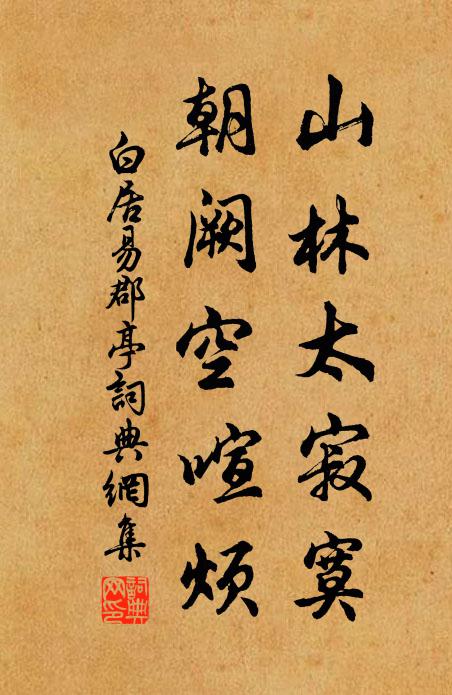 山林太寂寞
朝阙空喧烦
白居易郡亭詞典網集
詞典
网印